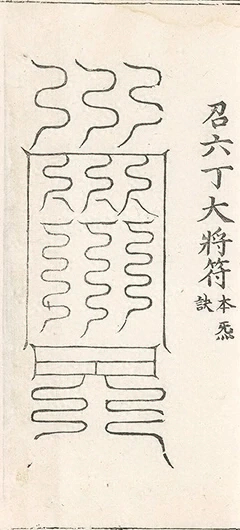 召六丁大將符
本炁
訣